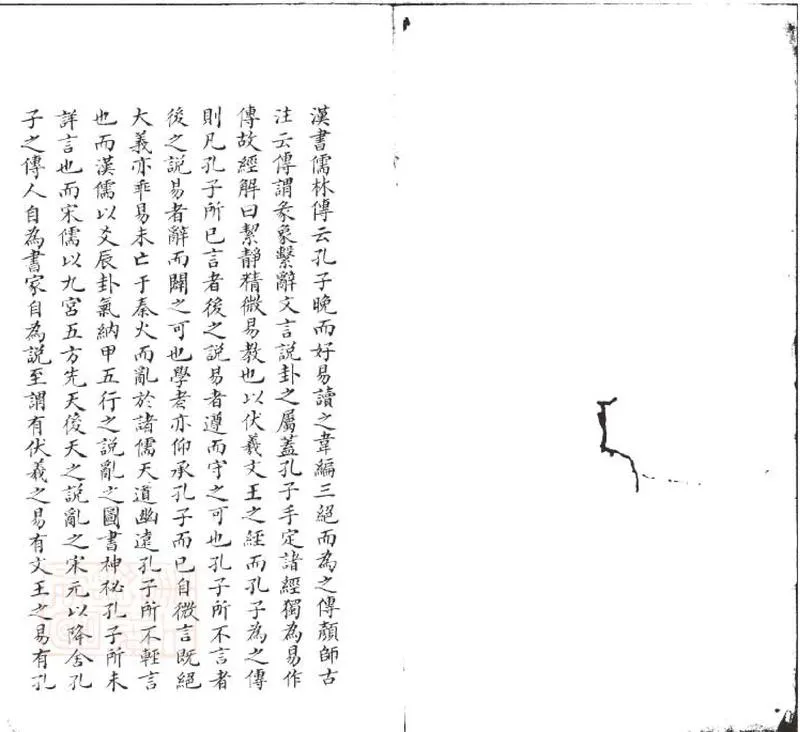 漢書儒林傳云孔子晚而好易讀之韋編三絕而為之傳顏師古
注云傳謂彖象繫辭文言說卦之屬蓋孔子手定諸經獨為易作
傳故經解曰絜靜精微易教也以伏羲文王之經而孔子為之傳
則凡孔子所已言者後之說易者遵而守之可也孔子所不言者
後之說易者辭而闢之可也學者亦仰承孔子而已自微言既絕
大義亦乖易未亡于秦火而亂於諸儒天道幽遠孔子所不輕言
也而漢儒以爻辰卦氣納甲五行之說亂之圖書神祕孔子所未
詳言也而宋儒以九宮五方先天後天之說亂之宋元以降舍孔
子之傳人自為書家自為説至謂有伏羲之易有文王之易有孔